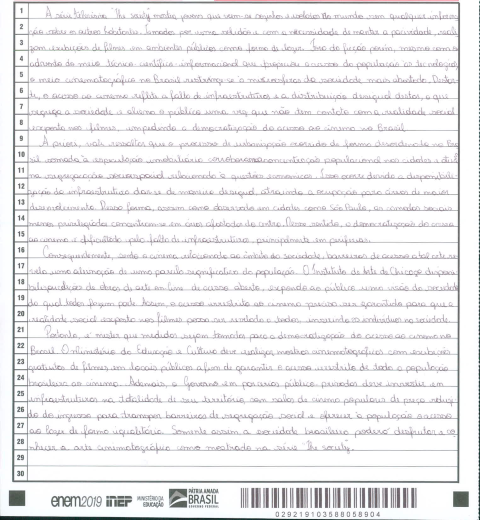 1 A série televisiva "The society" mostra jovens que vêm-se sozinhos e isolados do mundo, sem qualquer informa-
2 ção sobre os outros habitantes. Tomados por uma solidão e com a necessidade de manter a sociedade, reali-
3 zam exibições de filmes em ambientes públicos como forma de lazer. Fora da ficção porém, mesmo com o
4 advento do meio técnico científico informacional que propiciou o acesso da população às tecnologias,
5 o meio cinematográfico no Brasil restringe-se a microesferas da sociedade mais abastada. Desta-
6 te, o acesso ao cinema reflete a falta de infraestrutura e a distribuição desigual desta, o que
7 segrega a sociedade e aliena o público uma vez que não tem contato com a realidade social
8 exposta nos filmes, impedindo a democratização do acesso ao cinema no Brasil.
9 A priori, vale ressaltar que o processo de urbanização ocorrido de forma desordenada no Bra-
10 sil somado à especulação imobiliária concentração populacional nas cidades e
11 na segregação socioespacial relacionada à questões econômicas. Isso ocorre devido a disponibili-
12 zação de infraestrutura dar-se de maneira desigual, atraindo a ocupação para áreas de maior
13 desenvolvimento. Dessa forma, assim como observado em cidades como São Paulo, as camadas sociais
14 menos privilegiadas concentram-se em áreas afastadas do centro. Nesse sentido, a democratização do acesso
15 ao cinema é dificultada pela falta de infraestrutura, principalmente em periferias.
16 Consequentemente, sendo o cinema relacionado ao âmbito da sociedade, barreiras de acesso a tal arte re-
17 vela uma alienação de uma parcela significativa da população. O Instituto de Arte de Chicago disponi-
18 bilizou de obras de arte em de acesso aberto, expondo ao público uma visão da sociedade
19 da qual todos fazem parte. Assim, o acesso irrestrito ao cinema precisa ser garantido para que a
20 realidade social exposta nos filmes possa ser revelada a todos, inserindo os indivíduos na sociedade.
21 Portanto, é mister que medidas sejam tomadas para a democratização do acesso ao cinema no
22 Brasil. O ministério da Educação e Cultura deve realizar mostras cinematográficas com exibições
23 gratuitas de filmes em locais públicos a fim de garantir o acesso irrestrito de toda a população
24 brasileira ao cinema. Ademais, o Governo em parcerias público privadas deve investir em
25 infraestrutura na totalidade de seu território, com salas de cinema populares de preço reduzi-
26 do de ingresso para transpor barreiras de segregação social e oferecer à população o acesso
27 ao lazer de forma igualitária. Somente assim a sociedade brasileira poderá desfrutar e co-
28 nhecer a arte cinematográfica como mostrado na série "The society".
29
30
enem2019 inep MINISTÉRIO DA EDUCAÇÃO PÁTRIA AMADA BRASIL GOVERNO FEDERAL
029219103588058904